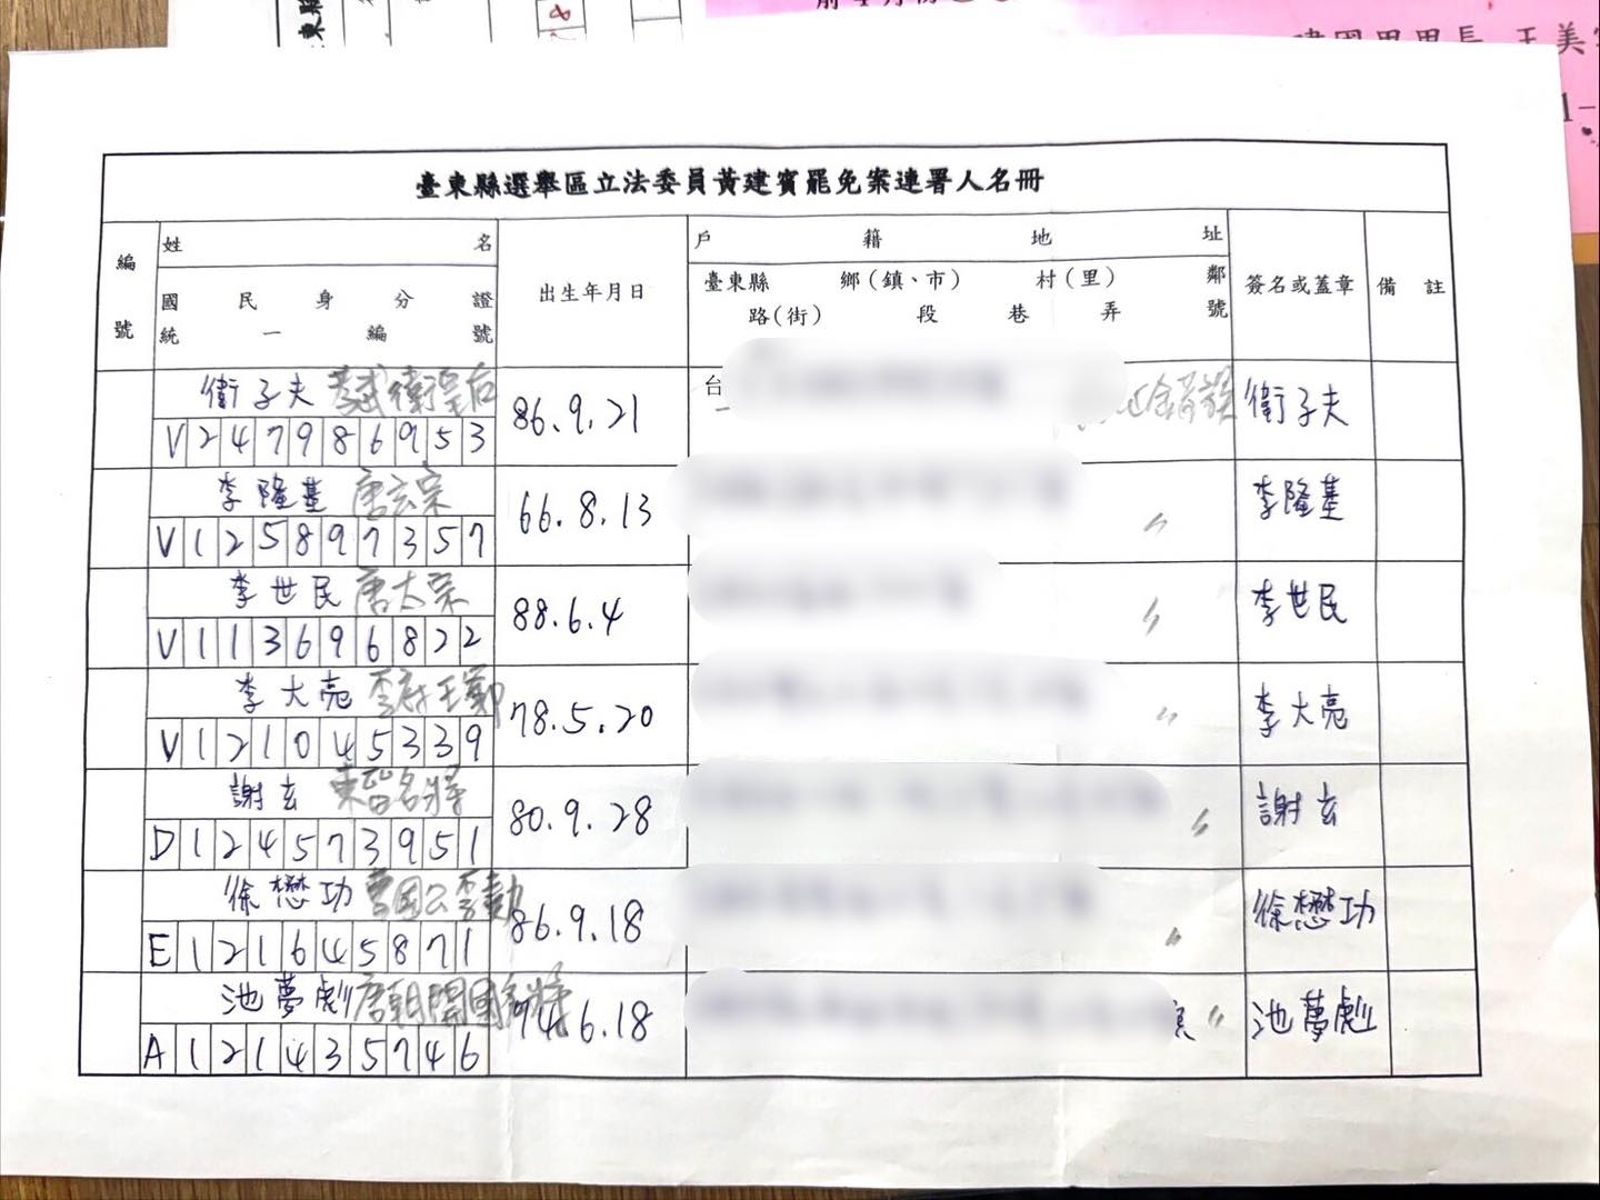 建國里里長 王美
臺東縣選舉區立法委員黃建賓罷免案連署人名冊
編號
姓名
國民身分證
統一編號
出生年月日
戶籍地址
臺東縣 鄉(鎮、市) 村(里) 鄰
路(街) 段 巷 弄 號
簽名或蓋章
備註
衛子夫 孝武衛皇后
V247986953
86.9.21
台
衛子夫
李隆基 唐玄宗
V125897357
66.8.13
〃
李隆基
李世民 唐太宗
V113696822
88.6.4
〃
李世民
李大亮
V121045339
78.5.20
〃
李大亮
謝玄 東晉名將
D124573951
80.9.28
〃
謝玄
徐懋功 李勣
E121645871
86.9.18
〃
徐懋功
池夢彪 唐朝開國名將
A121435746
74.6.18
〃
池夢彪